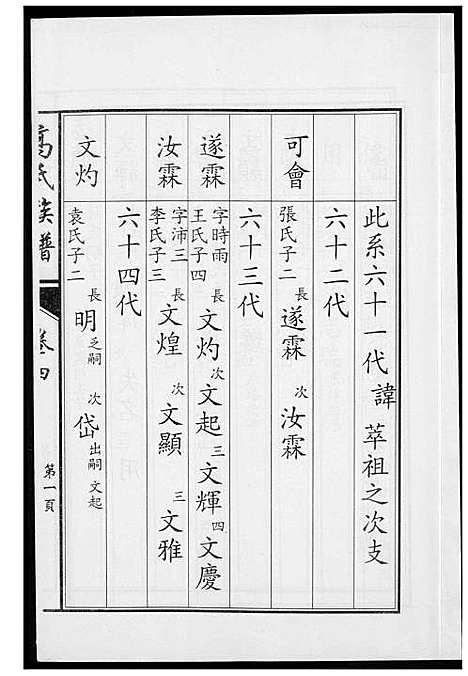 此系六十一代諱萃祖之次支
六十二代
可會 張氏子二 長 遂霖 次 汝霖
六十三代
遂霖 字時雨 王氏子四 長 文灼 次 文起 三 文輝 四 文慶
汝霖 字沛三 李氏子三 長 文煌 次 文顯 三 文雅
六十四代
文灼 袁氏子二 長 明 乏嗣 次 岱 出嗣文起
高氏族譜 卷四 第一頁